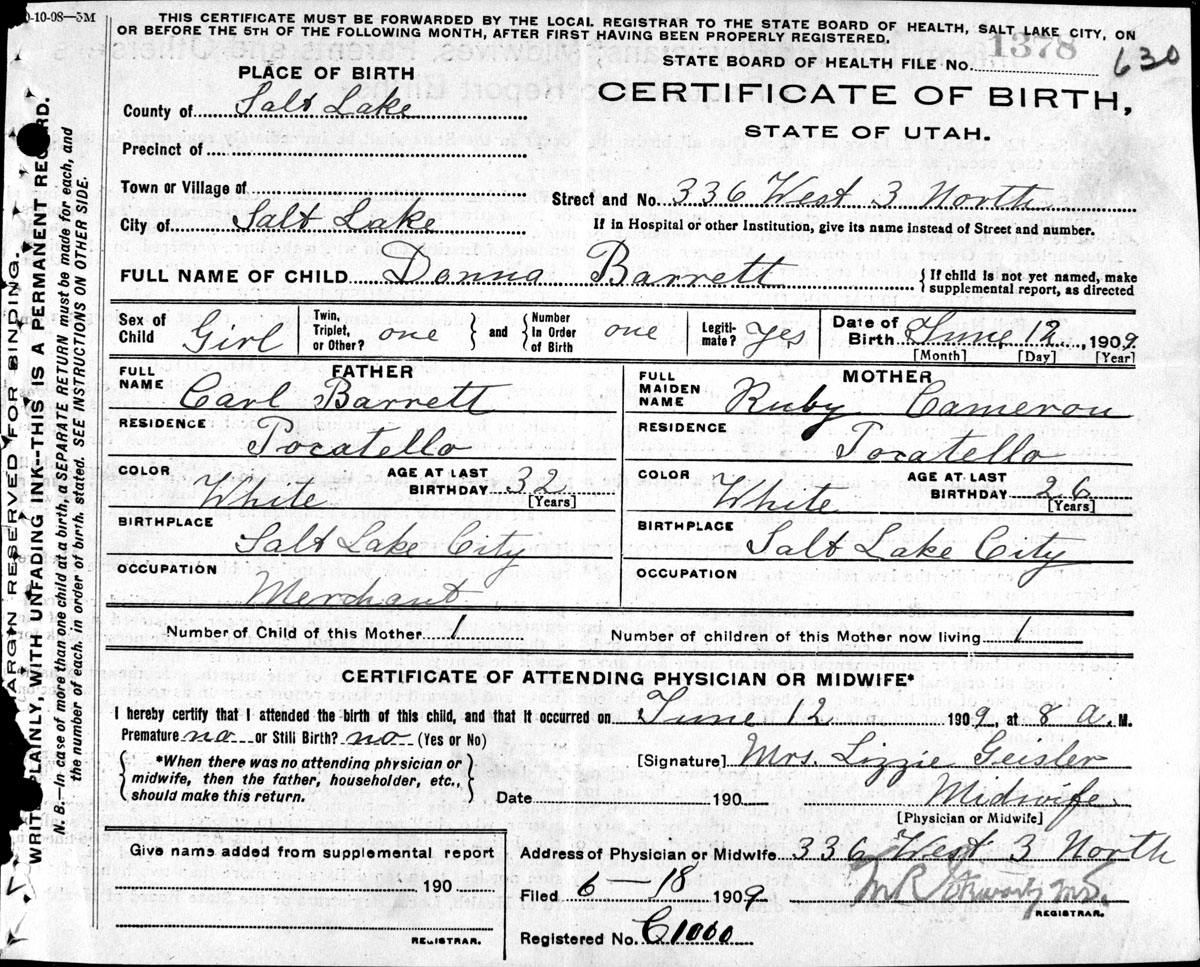 0-10-08—5M
THIS CERTIFICATE MUST BE FORWARDED BY THE LOCAL REGISTRAR TO THE STATE BOARD OF HEALTH, SALT LAKE CITY, ON
OR BEFORE THE 5TH OF THE FOLLOWING MONTH, AFTER FIRST HAVING BEEN PROPERLY REGISTERED.
STATE BOARD OF HEALTH FILE No. 1378 630
PLACE OF BIRTH
CERTIFICATE OF BIRTH,
STATE OF UTAH.
County of Salt Lake
Precinct of
Town or Village of
Street and No. 336 West 3 North
City of Salt Lake
If in Hospital or other Institution, give its name instead of Street and number.
FULL NAME OF CHILD Donna Barrett
{If child is not yet named, make
supplemental report, as directed
Sex of Child Girl
Twin, Triplet, or Other? one } and { Number In Order of Birth one
Legiti-mate? Yes
Date of Birth June 12, 1909
[Month] [Day] [Year]
FATHER
FULL NAME Carl Barrett
RESIDENCE Pocatello
COLOR White
AGE AT LAST BIRTHDAY 32
[Years]
BIRTHPLACE Salt Lake City
OCCUPATION Merchant
MOTHER
FULL MAIDEN NAME Ruby Cameron
RESIDENCE Pocatello
COLOR White
AGE AT LAST BIRTHDAY 26
[Years]
BIRTHPLACE Salt Lake City
OCCUPATION
Number of Child of this Mother 1
Number of children of this Mother now living 1
CERTIFICATE OF ATTENDING PHYSICIAN OR MIDWIFE*
I hereby certify that I attended the birth of this child, and that it occurred on June 12 1909, at 8 a. M.
Premature no or Still Birth? no (Yes or No)
{ *When there was no attending physician or
midwife, then the father, householder, etc.,
should make this return. }
[Signature] Mrs. Lizzie Geisler
Date 190 Midwife
[Physician or Midwife]
Give name added from supplemental report
190
REGISTRAR.
Address of Physician or Midwife 336 West 3 North
Filed 6—18 1909 M R
REGISTRAR.
Registered No. C1060
MARGIN RESERVED FOR BINDING.
WRITE PLAINLY, WITH UNFADING INK--THIS IS A PERMANENT RECORD.
N. B.—In case of more than one child at a birth, a SEPARATE RETURN must be made for each, and
the number of each, in order of birth, stated. SEE INSTRUCTIONS ON OTHER SIDE.